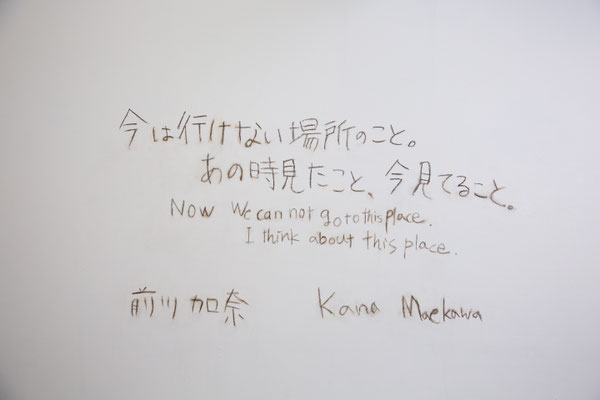 今は行けない場所のこと。
あの時見たこと、今見てること。
Now We can not go to this place.
I think about this place.
前川加奈 Kana Maekawa